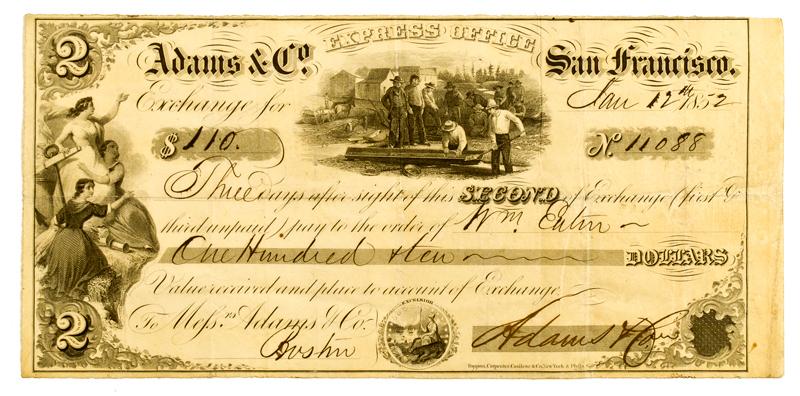 2 EXPRESS OFFICE
Adams & Co. San Francisco.
Exchange for Jan 12th 1852
$ 110. No 11088
Three days after sight of this SECOND of Exchange (first &
third unpaid) pay to the order of Wm. Eaton
One Hundred & ten DOLLARS
Value received and place to account of Exchange,
To Messrs Adams & Co. EXCELSIOR Adams & Co
2 Boston
Toppan, Carpenter, Casilear & Co. New York & Phila.